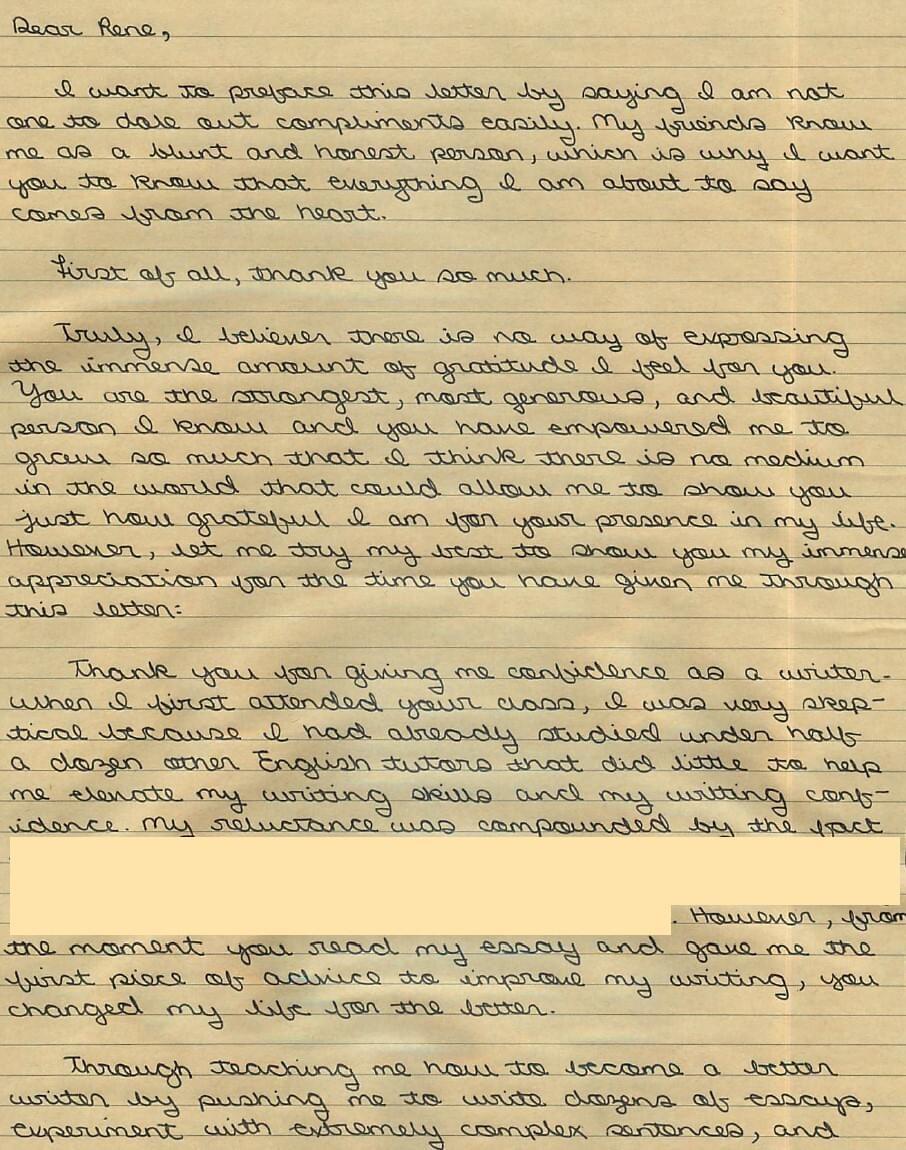 Dear Rene,
I want to preface this letter by saying I am not
one to dole out compliments easily. My friends know
me as a blunt and honest person, which is why I want
you to know that everything I am about to say
comes from the heart.
First of all, thank you so much.
Truly, I believer there is no way of expressing
the immense amount of gratitude I feel for you.
You are the strongest, most generous, and beautiful
person I know and you have empowered me to
grow so much that I think there is no medium
in the world that could allow me to show you
just how grateful I am for your presence in my life.
However, let me try my best to show you my immense
appreciation for the time you have given me through
this letter:
Thank you for giving me confidence as a writer.
When I first attended your class, I was very skep-
tical because I had already studied under half
a dozen other English tutors that did little to help
me elevate my writing skills and my writing conf-
idence. My reluctance was compounded by the fact
. However, from
the moment you read my essay and gave me the
first piece of advice to improve my writing, you
changed my life for the better.
Through teaching me how to become a better
writer by pushing me to write dozens of essays,
experiment with extremely complex sentences, and